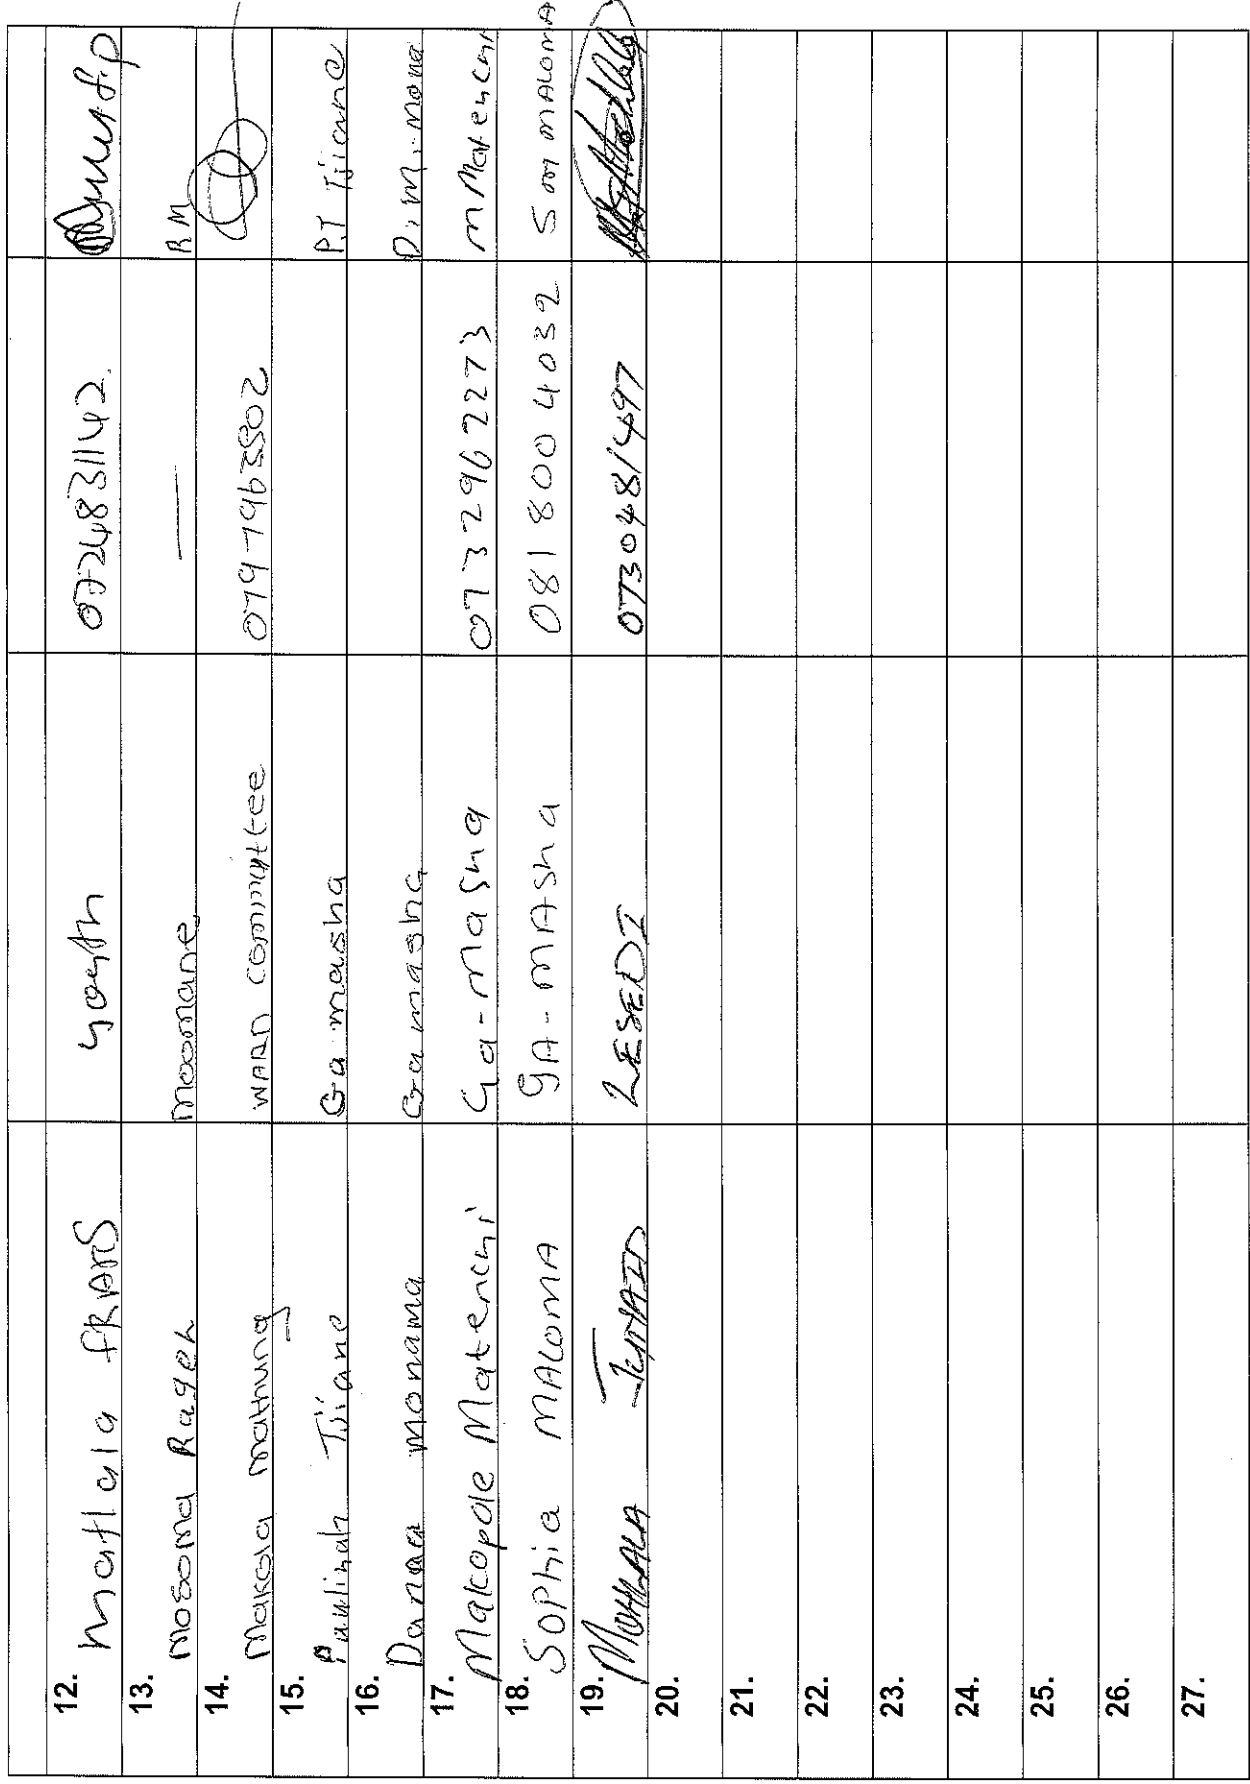 12. Matlala FRANS Youth 0724831142.
13. Mosoma Ragel Moomane — R M
14. Makola Mathung WARD committee 0797963502
15. Paulinah Tjiane Ga-masha P.T Tjiane
16. Danaa monama Ga masha D.M. mona
17. Makopole Matenchi Ga-Masha 0732962273 M Matenchi
18. SOPhia MALOMA GA-MASha 081 800 4032 S MALOMA
19. MOHLALA LESEDI 0730481497
20.
21.
22.
23.
24.
25.
26.
27.